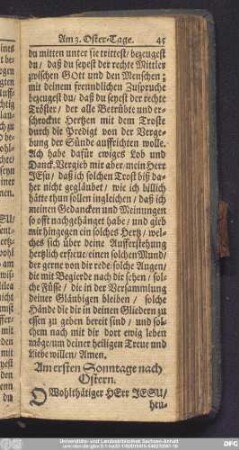 Am 3. Oster-Tage. 45
du mitten unter sie trittest/ bezeugest
du/ daß du seyest der rechte Mittler
zwischen GOtt und den Menschen;
mit deinem freundlichen Zuspruche
bezeugest du/ daß du seyest der rechte
Tröster/ der alle Betrübte und er-
schrockne Hertzen mit dem Troste
durch die Predigt von der Verge-
bung der Sünde auffrichten wolle.
Ach habe dafür ewiges Lob und
Danck. Vergieb mir aber mein Herr
JEsu/ daß ich solchen Trost biß da-
her nicht gegläubet/ wie ich billich
hätte thun sollen ingleichen/ daß ich
meinen Gedancken und Meinungen
so offt nachgehänget habe/ und gieb
mir hingegen ein solches Hertz/ wel-
ches sich über deine Aufferstehung
hertzlich erfreue/ einen solchen Mund/
der gerne von dir rede/ solche Augen/
die mit Begierde nach dir sehen/ sol-
che Füsse/ die in der Versammlung
deiner Gläubigen bleiben/ solche
Hände die dir in deinen Gliedern zu
essen zu geben bereit sind/ und sol-
chem nach mit dir dort ewig leben
möge/ um deiner heiligen Treue und
Liebe willen/ Amen.
Am ersten Sonntage nach
Ostern.
O Wohlthätiger HErr JESU/
heu-